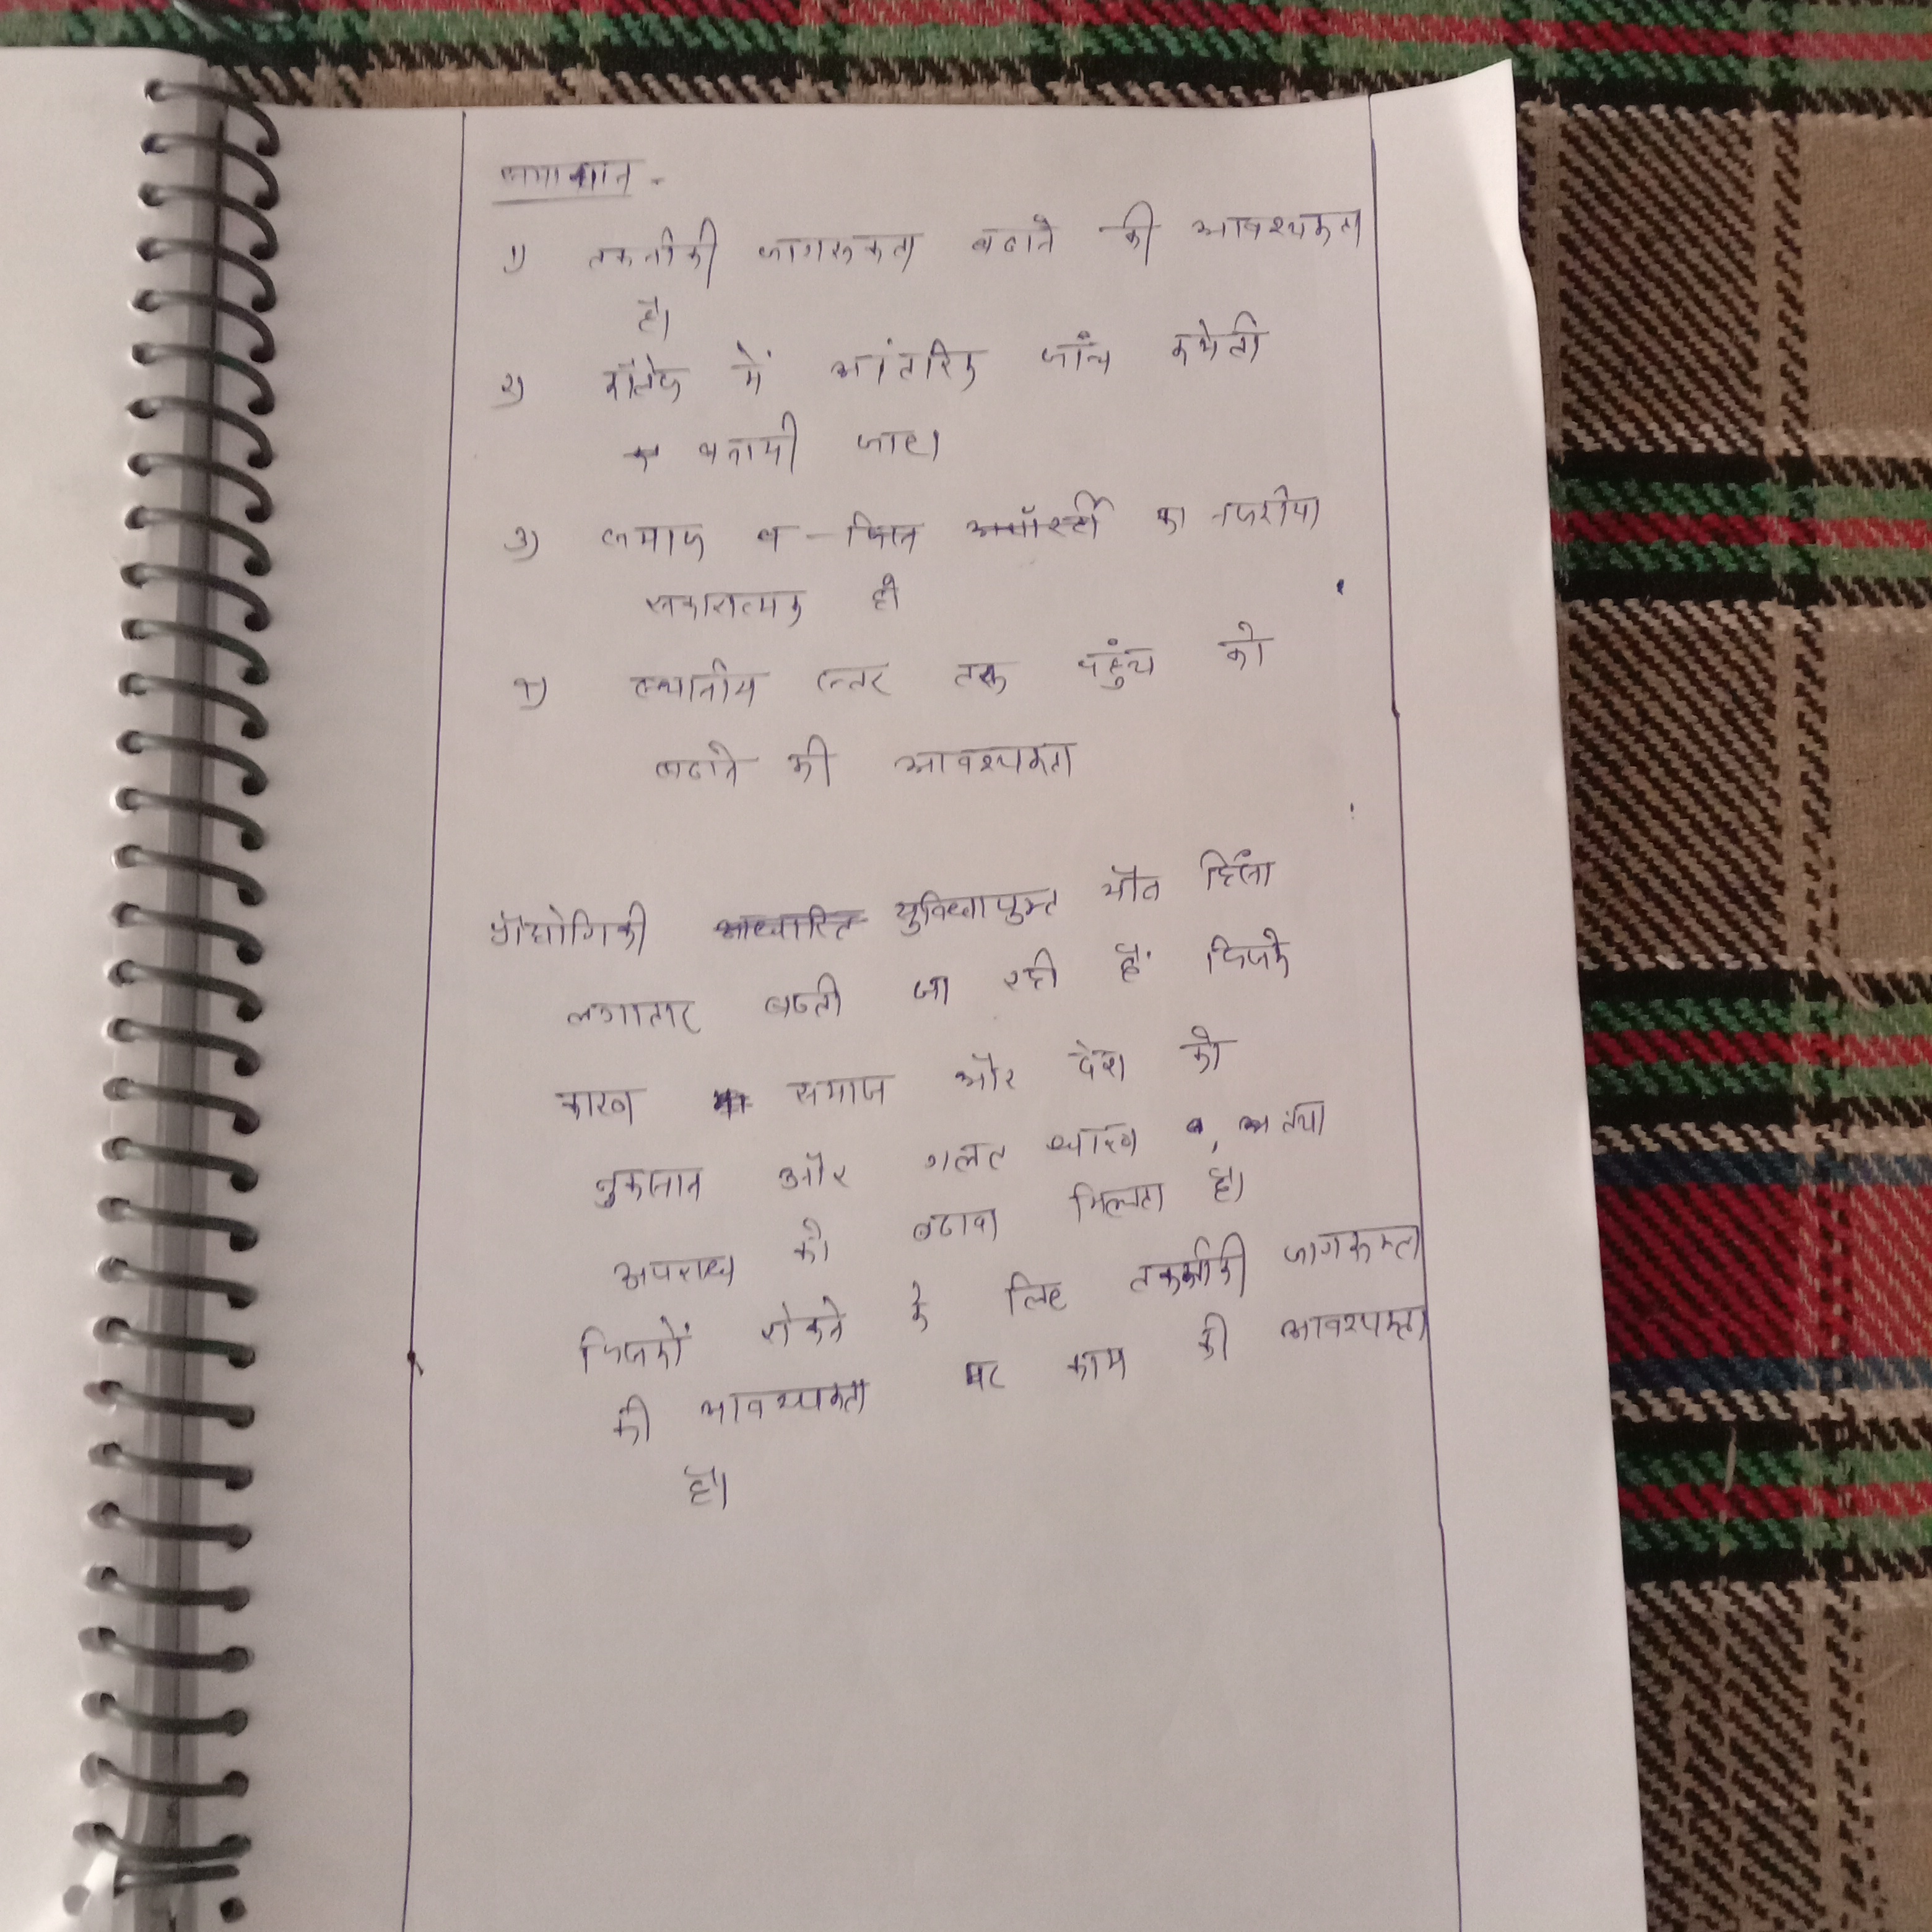 समाधान -
1) तकनीकी जागरूकता बढाने की आवश्यकता
है।
2) कॉलेज में आंतरिक जाँच कमेटी
बनायी जाए।
3) समाज व का नजरीया
सकारात्मक हो
4) स्थानीय स्तर तक पहुंच को
बढाने की आवश्यकता
प्रौद्योगिकी सुविधायुक्त यौन हिंसा
लगातार बढती जा रही हैं जिसके
कारण समाज और देश को
नुकसान और गलत धारणा , तथा
अपराध को बढावा मिलता है।
जिसको रोकने के लिए तकनीकी जागरूकता
की आवश्यकता पर काम की आवश्यकता
है।